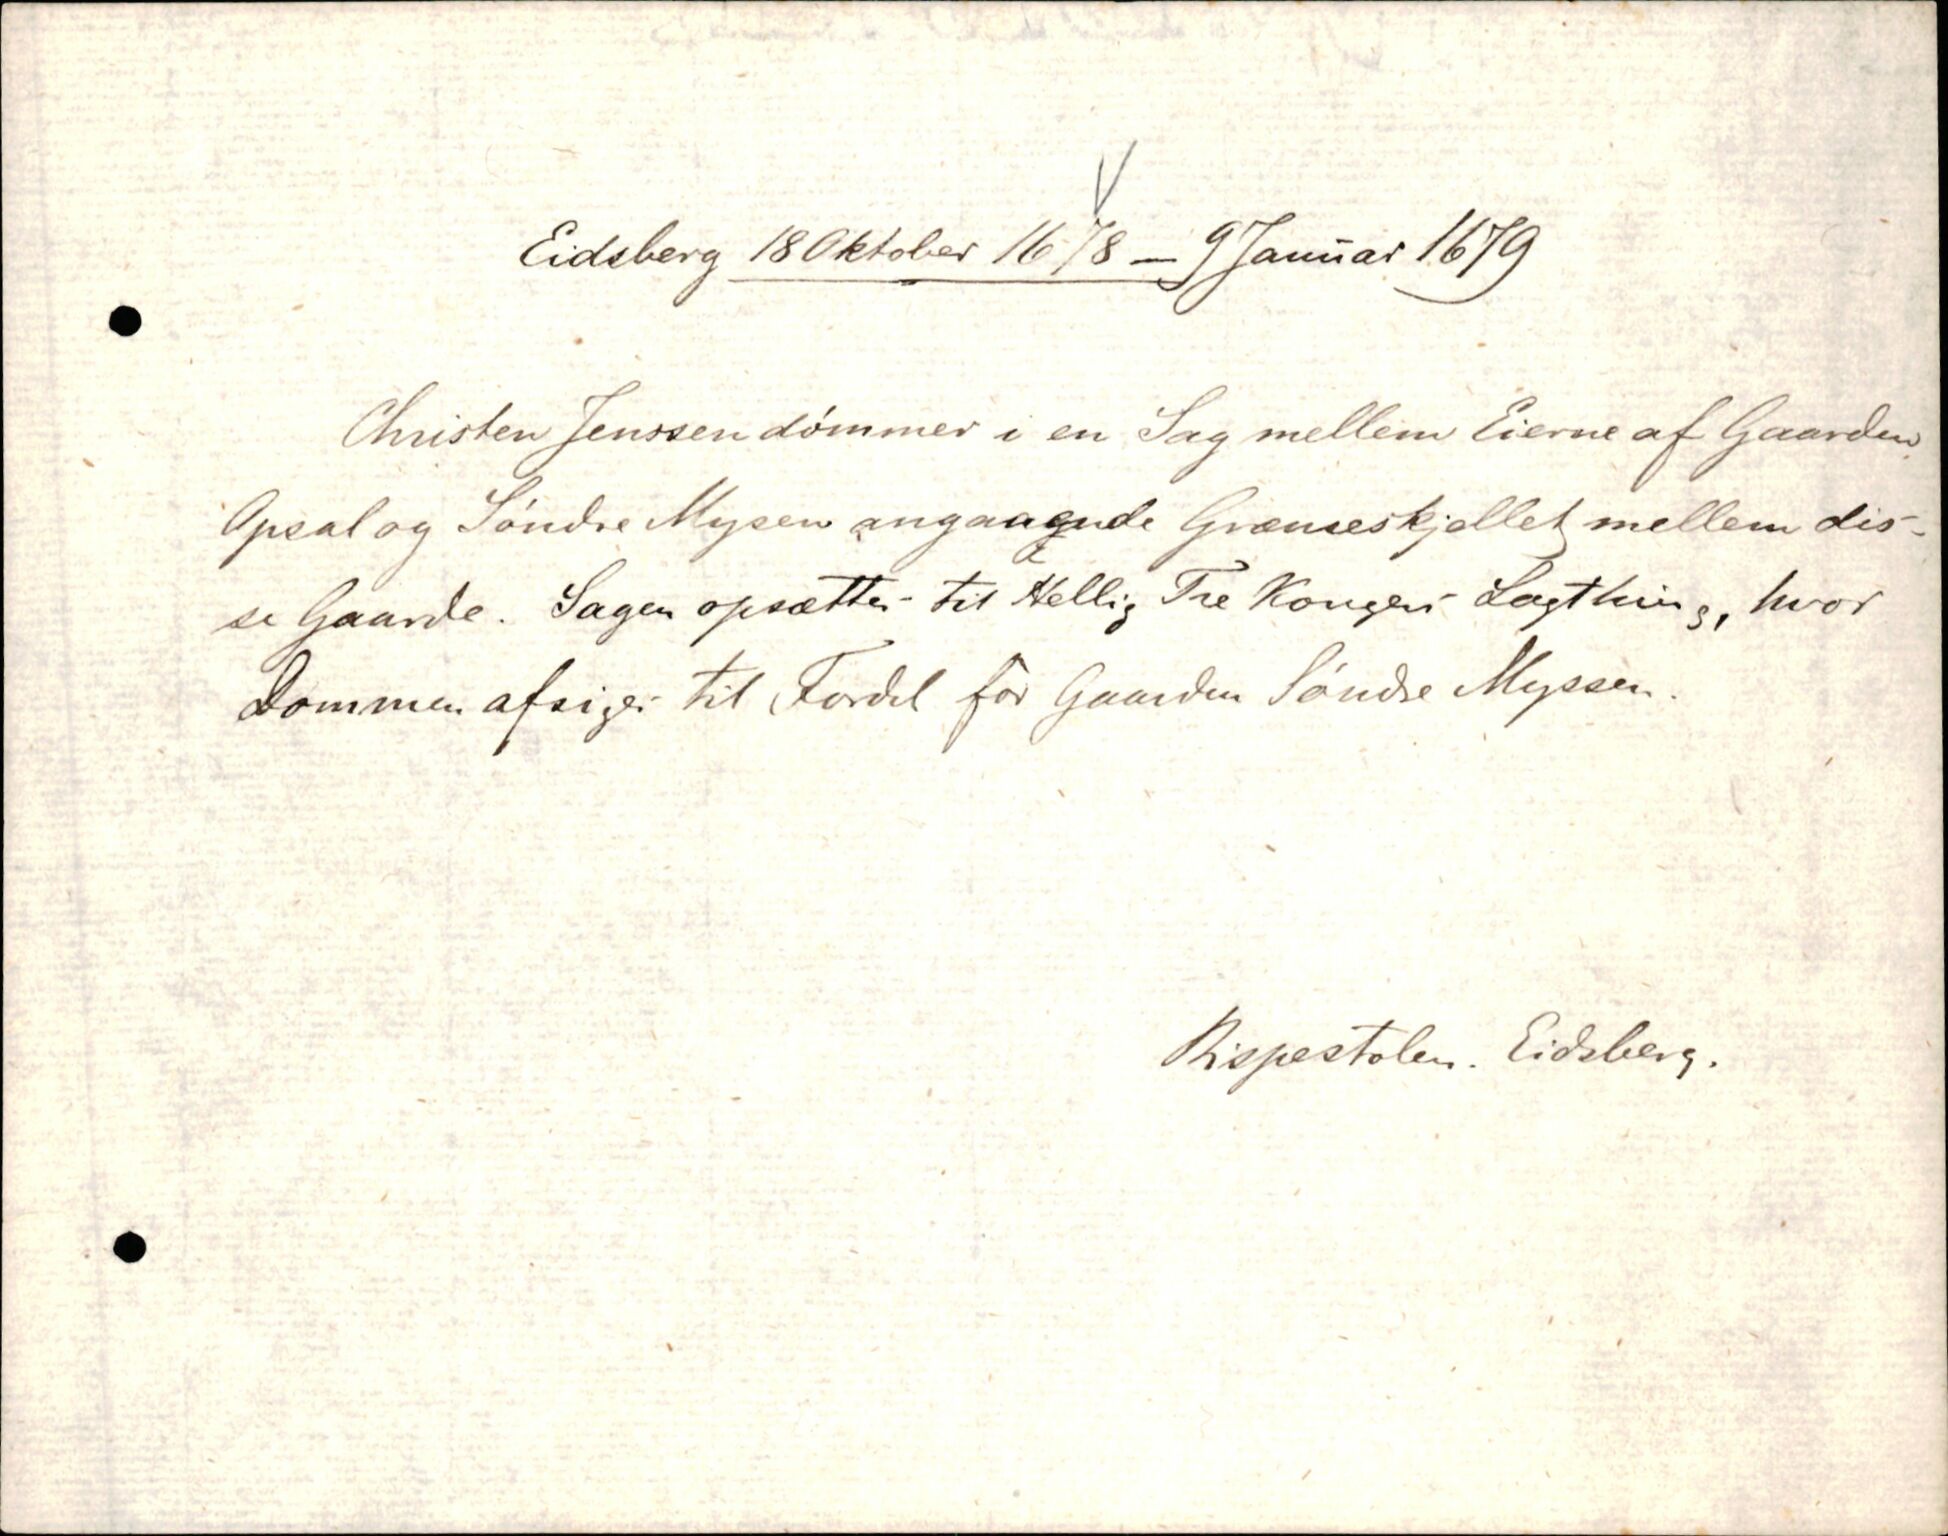 Eidsberg 18 Oktober 1678 — 9 Januar 1679
Christen Jenssen dömmer i en Sag mellem Eierne af Gaarden
Opsal og Söndre Mysen angaaende Grænseskjellet mellem dis-
se Gaarde. Sagen opsættes til Hellig Tre Kongers Lagthing, hvor
Dommen afsiges til Fordel for Gaarden Söndre Myssen.
Rispestolen. Eidsberg.